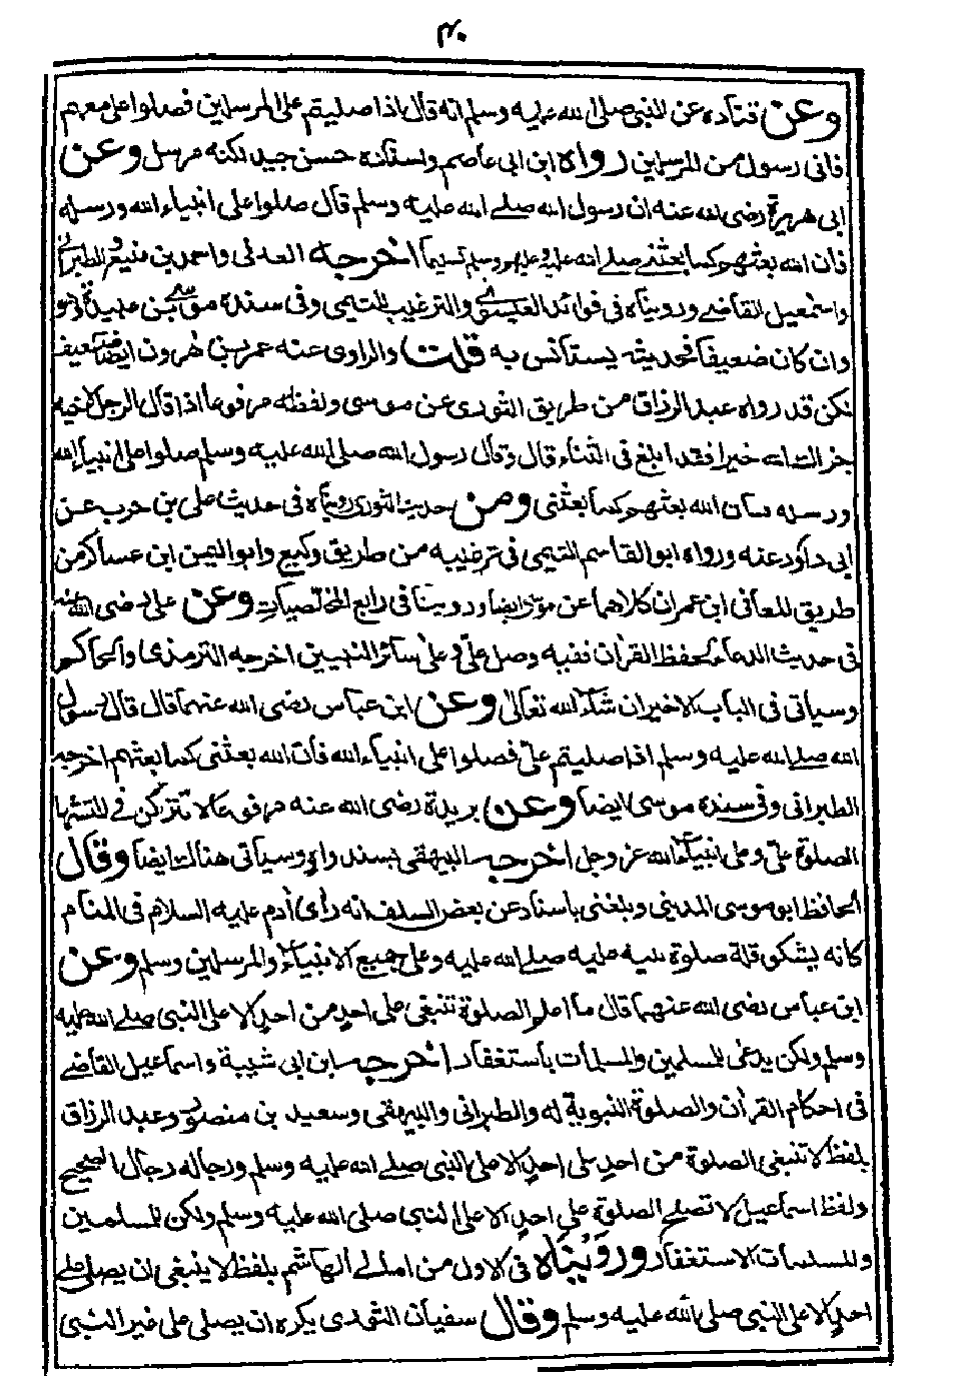 ٤٠
وعن قتادة عن النبي صلى الله عليه وسلم انه قال اذا صليتم على المرسلين فصلوا على معهم
فانى رسول من المرسلين رواه ابن ابى عاصم واسناده حسن جيد لكنه مرسل وعن
ابى هريرة رضى الله عنه ان رسول الله صلى الله عليه وسلم قال صلوا على انبياء الله ورسله
فان الله بعثهم كما بعثنى صلى الله عليه وعليهم وسلم تسليما اخرجه العدنى واحمد بن منيع والطبرانى
واسمعيل القاضى ورويناه فى فوائد العيسوى والترغيب للتيمى وفى سنده موسى بن عبيدة وهو
وان كان ضعيفا فحديثه يستأنس به قلت والراوى عنه عمر بن هرون ايضا ضعيف
لكن قد رواه عبد الرزاق من طريق الثورى عن موسى ولفظه مرفوعا اذا قال الرجل لاخيه
جزاك الله خيرا فقد ابلغ فى الثناء قال وقال رسول الله صلى الله عليه وسلم صلوا على انبياء الله
ورسله فان الله بعثهم كما بعثنى ومن حديث الثورى رويناه فى حديث على بن حرب عن
ابى داود عنه ورواه ابو القاسم التيمى فى ترغيبه من طريق وكيع وابو اليمن ابن عساكر من
طريق المعافى ابن عمران كلاهما عن موسى ايضا وروينا فى رابع المخلصيات وعن على رضى الله عنه
فى حديث الدعاء لحفظ القران نفيه وصل على وعلى سائر النبيين اخرجه الترمذى والحاكم
وسياتى فى الباب الاخير ان شاء الله تعالى وعن ابن عباس رضى الله عنهما قال قال رسول
الله صلى الله عليه وسلم اذا صليتم على فصلوا على انبياء الله فان الله بعثنى كما بعثهم اخرجه
الطبرانى وفى سنده موسى ايضا وعن بريدة رضى الله عنه مرفوعا لا تتركن فى التشهد
الصلوة على وعلى انبياء الله عز وجل اخرجه البيهقى بسند واه وسياتى هنالك ايضا وقال
الحافظ ابو موسى المدينى وبلغنى باسناد عن بعض السلف انه راى ادم عليه السلام فى المنام
كانه يشكو قلة صلوة بنيه عليه صلى الله عليه وعلى جميع الانبياء والمرسلين وسلم وعن
ابن عباس رضى الله عنهما قال ما اعلم الصلوة تنبغى على احد من احد الا على النبى صلى الله عليه
وسلم ولكن يدعى للمسلمين والمسلمات باستغفار اخرجه ابن ابى شيبة واسماعيل القاضى
فى احكام القران والصلوة النبوية له والطبرانى والبيهقى وسعيد بن منصور وعبد الرزاق
بلفظ لا تنبغى الصلوة من احد على احد الا على النبى صلى الله عليه وسلم ورجاله رجال الصحيح
ولفظ اسماعيل لا تصلح الصلوة على احد الا على النبى صلى الله عليه وسلم ولكن للمسلمين
والمسلمات الاستغفار ورويناه فى الاول من امالى الهاشم بلفظ لا ينبغى ان يصلى على
احد الا على النبى صلى الله عليه وسلم وقال سفيان الثورى يكره ان يصلى على غير النبى